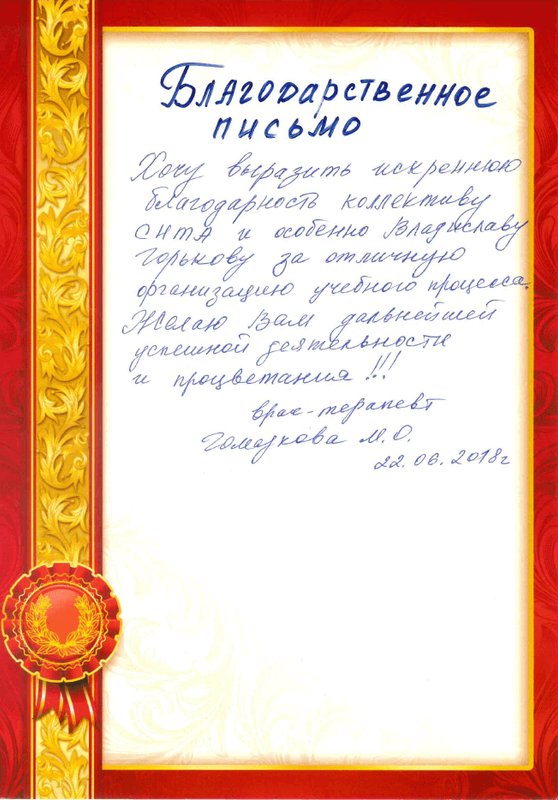 Благодарственное
письмо
Хочу выразить искреннюю
благодарность коллективу
СНТА и особенно Владиславу
Горькову за отличную
организацию учебного процесса.
Желаю Вам дальнейшей
успешной деятельности
и процветания!!!
врач-терапевт
Гомазкова М.О.
22.06.2018г